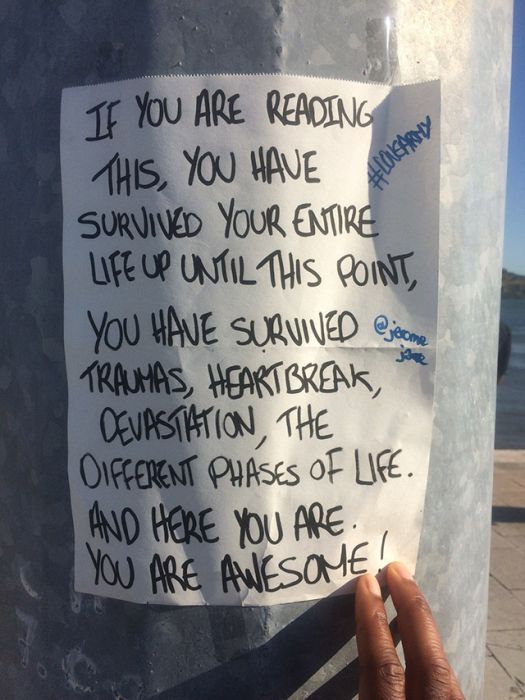 IF YOU ARE READING
THIS, YOU HAVE
SURVIVED YOUR ENTIRE
LIFE UP UNTIL THIS POINT,
YOU HAVE SURVIVED
TRAUMAS, HEARTBREAK,
DEVASTATION, THE
DIFFERENT PHASES OF LIFE.
AND HERE YOU ARE.
YOU ARE AWESOME!
#LOVEARMY
@jerome
jarre